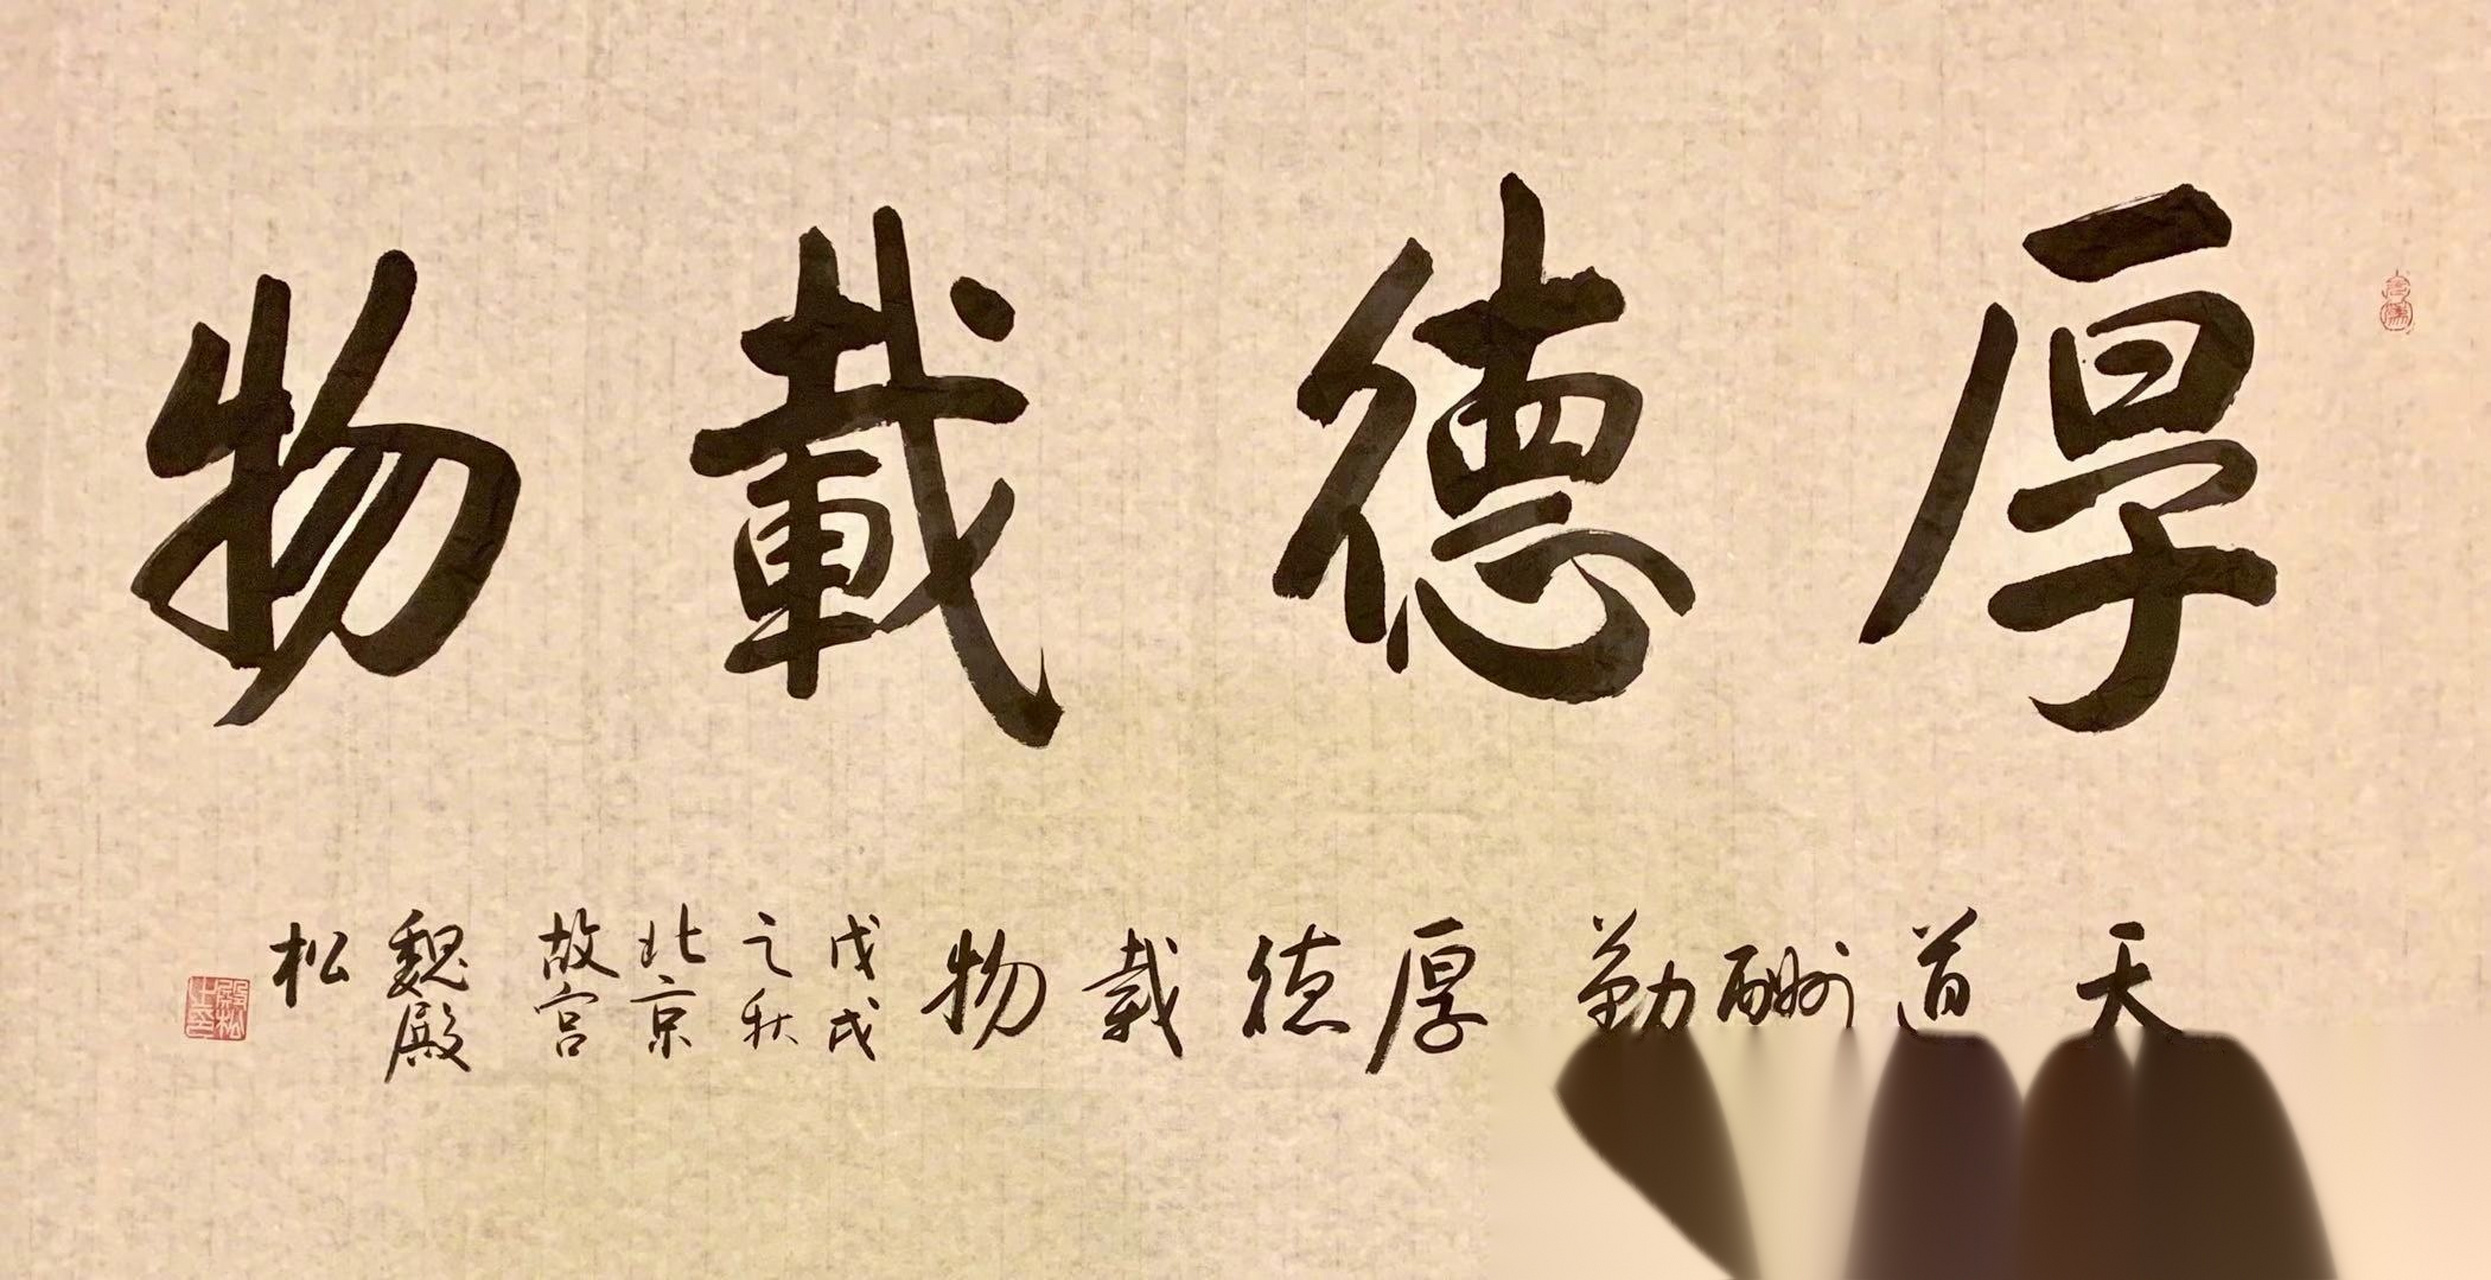 厚德載物
天道酬勤 厚德載物 戊戌之秋 北京故宮 魏殿松
殿松之印